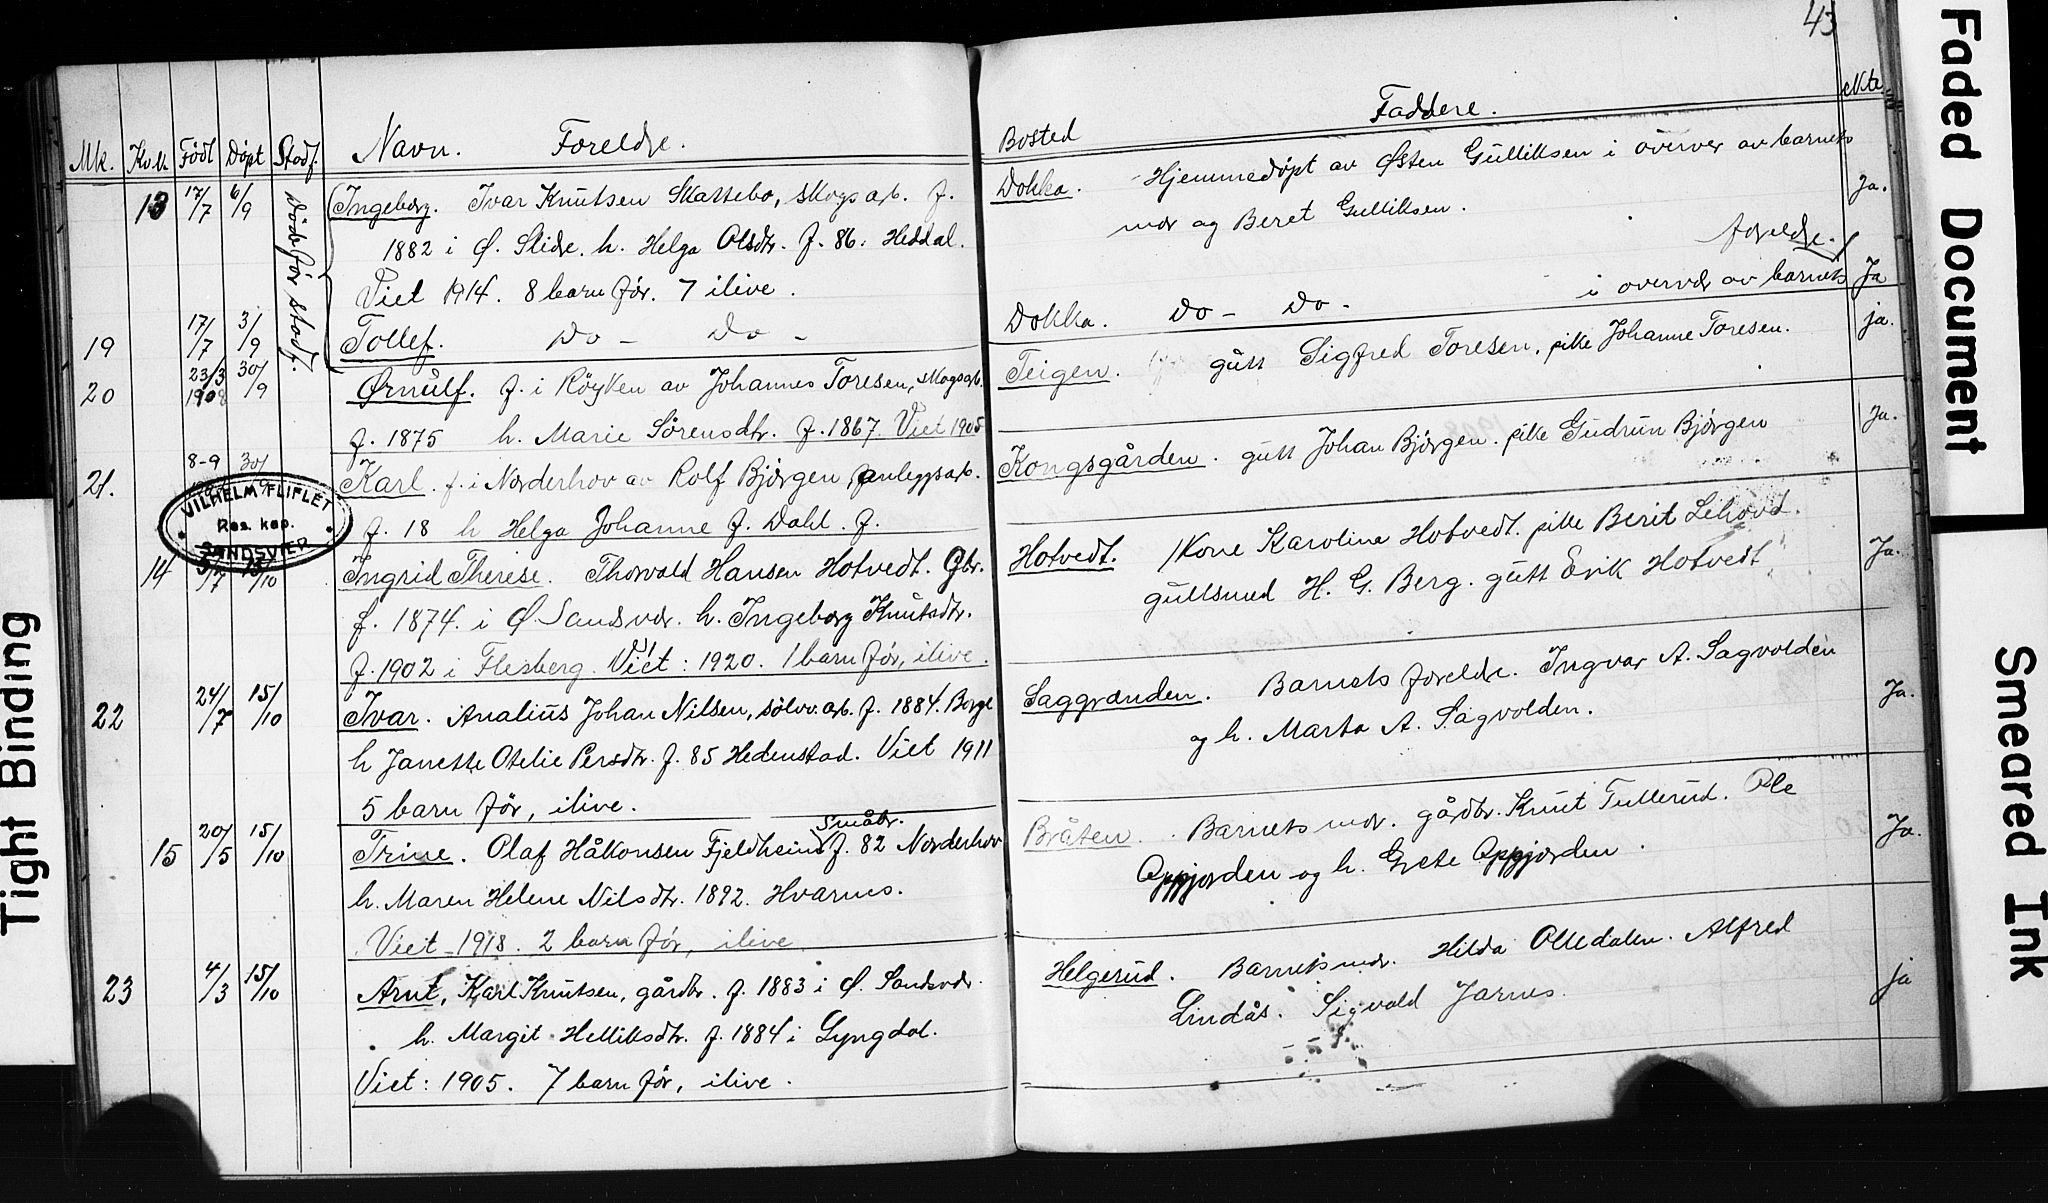 43
Mk. Kv.k. Født Døpt Stadf. Navn. Foreldre.
13 17/7 6/9 Ingeborg. Ivar Knutsen Skattebo, skogsarb. f.
1882 i Ø. Slidre. h. Helga Olsdtr. f. 86. Heddal.
Viet 1914. 8 barn før. 7 ilive.
Død før stadf.
19 17/7 3/9 Tollef. Do - Do -
20 23/3 1908 30/9 Ørnulf. f. i Røyken av Johannes Toresen, skogsarb.
f. 1875 h. Marie Sørensdtr. f. 1867. Viet 1905
21. 8-9 30/9 Karl. f. i Norderhov av Rolf Bjørgen, anleggsarb.
f. 18 h Helga Johanne f. Dahl. f.
VILHELM FLIFLET
Res. kap.
SANDSVÆR
14 5/7 15/10 Ingrid Therese. Thorvald Hansen Hotvedt. Gbr.
f. 1874. i Ø. Sandsvær. h. Ingeborg Knutsdtr.
f. 1902 i Flesberg. Viet: 1920. 1 barn før, ilive.
22 24/7 15/10 Ivar. Analius Johan Nilsen, sølvv.arb. f. 1884. Berge
h Janette Otelie Persdtr. f. 85 Hedenstad. Viet 1911
5 barn før, ilive.
15 20/5 15/10 Trine. Olaf Håkonsen Fjeldheim Småbr. f. 82 Norderhov
h. Maren Helene Nilsdtr. 1892. Hvarnes.
Viet 1918. 2 barn før, ilive
23 4/3 15/10 Arnt, Karl Knutsen, gårdbr. f. 1883 i Ø. Sandsvær.
h. Margit Helliksdtr. f. 1884 i Lyngdal.
Viet: 1905. 7 barn før, ilive.
Bosted Faddere.
Dokka. Hjemmedøpt av Østen Gulliksen i overvær av barnets Ja.
mor og Beret Gulliksen.
foreldre.
Dokka. Do - Do - i overvær av barnets Ja
Teigen. gutt Sigfred Toresen, pike Johanne Toresen. ja.
Kongsgården. gutt Johan Bjørgen. pike Gudrun Bjørgen Ja.
Hotvedt. Kone Karoline Hotvedt. pike Berit Lehovd. Ja.
gullsmed H. G. Berg. gutt Erik Hotvedt
Saggrenden. Barnets foreldre. Ingvar A. Sagvolden Ja.
og h. Marta A. Sagvolden.
Bråten. Barnets mor. gårdbr. Knut Tullerud. Ole Ja.
Oppjorden og h. Grete Oppjorden.
Helgerud. Barnets mor. Hilda Olledalen. Alfred ja
Lindås. Sigvald Jarnes.
Faded Document
Smeared Ink
Tight Binding